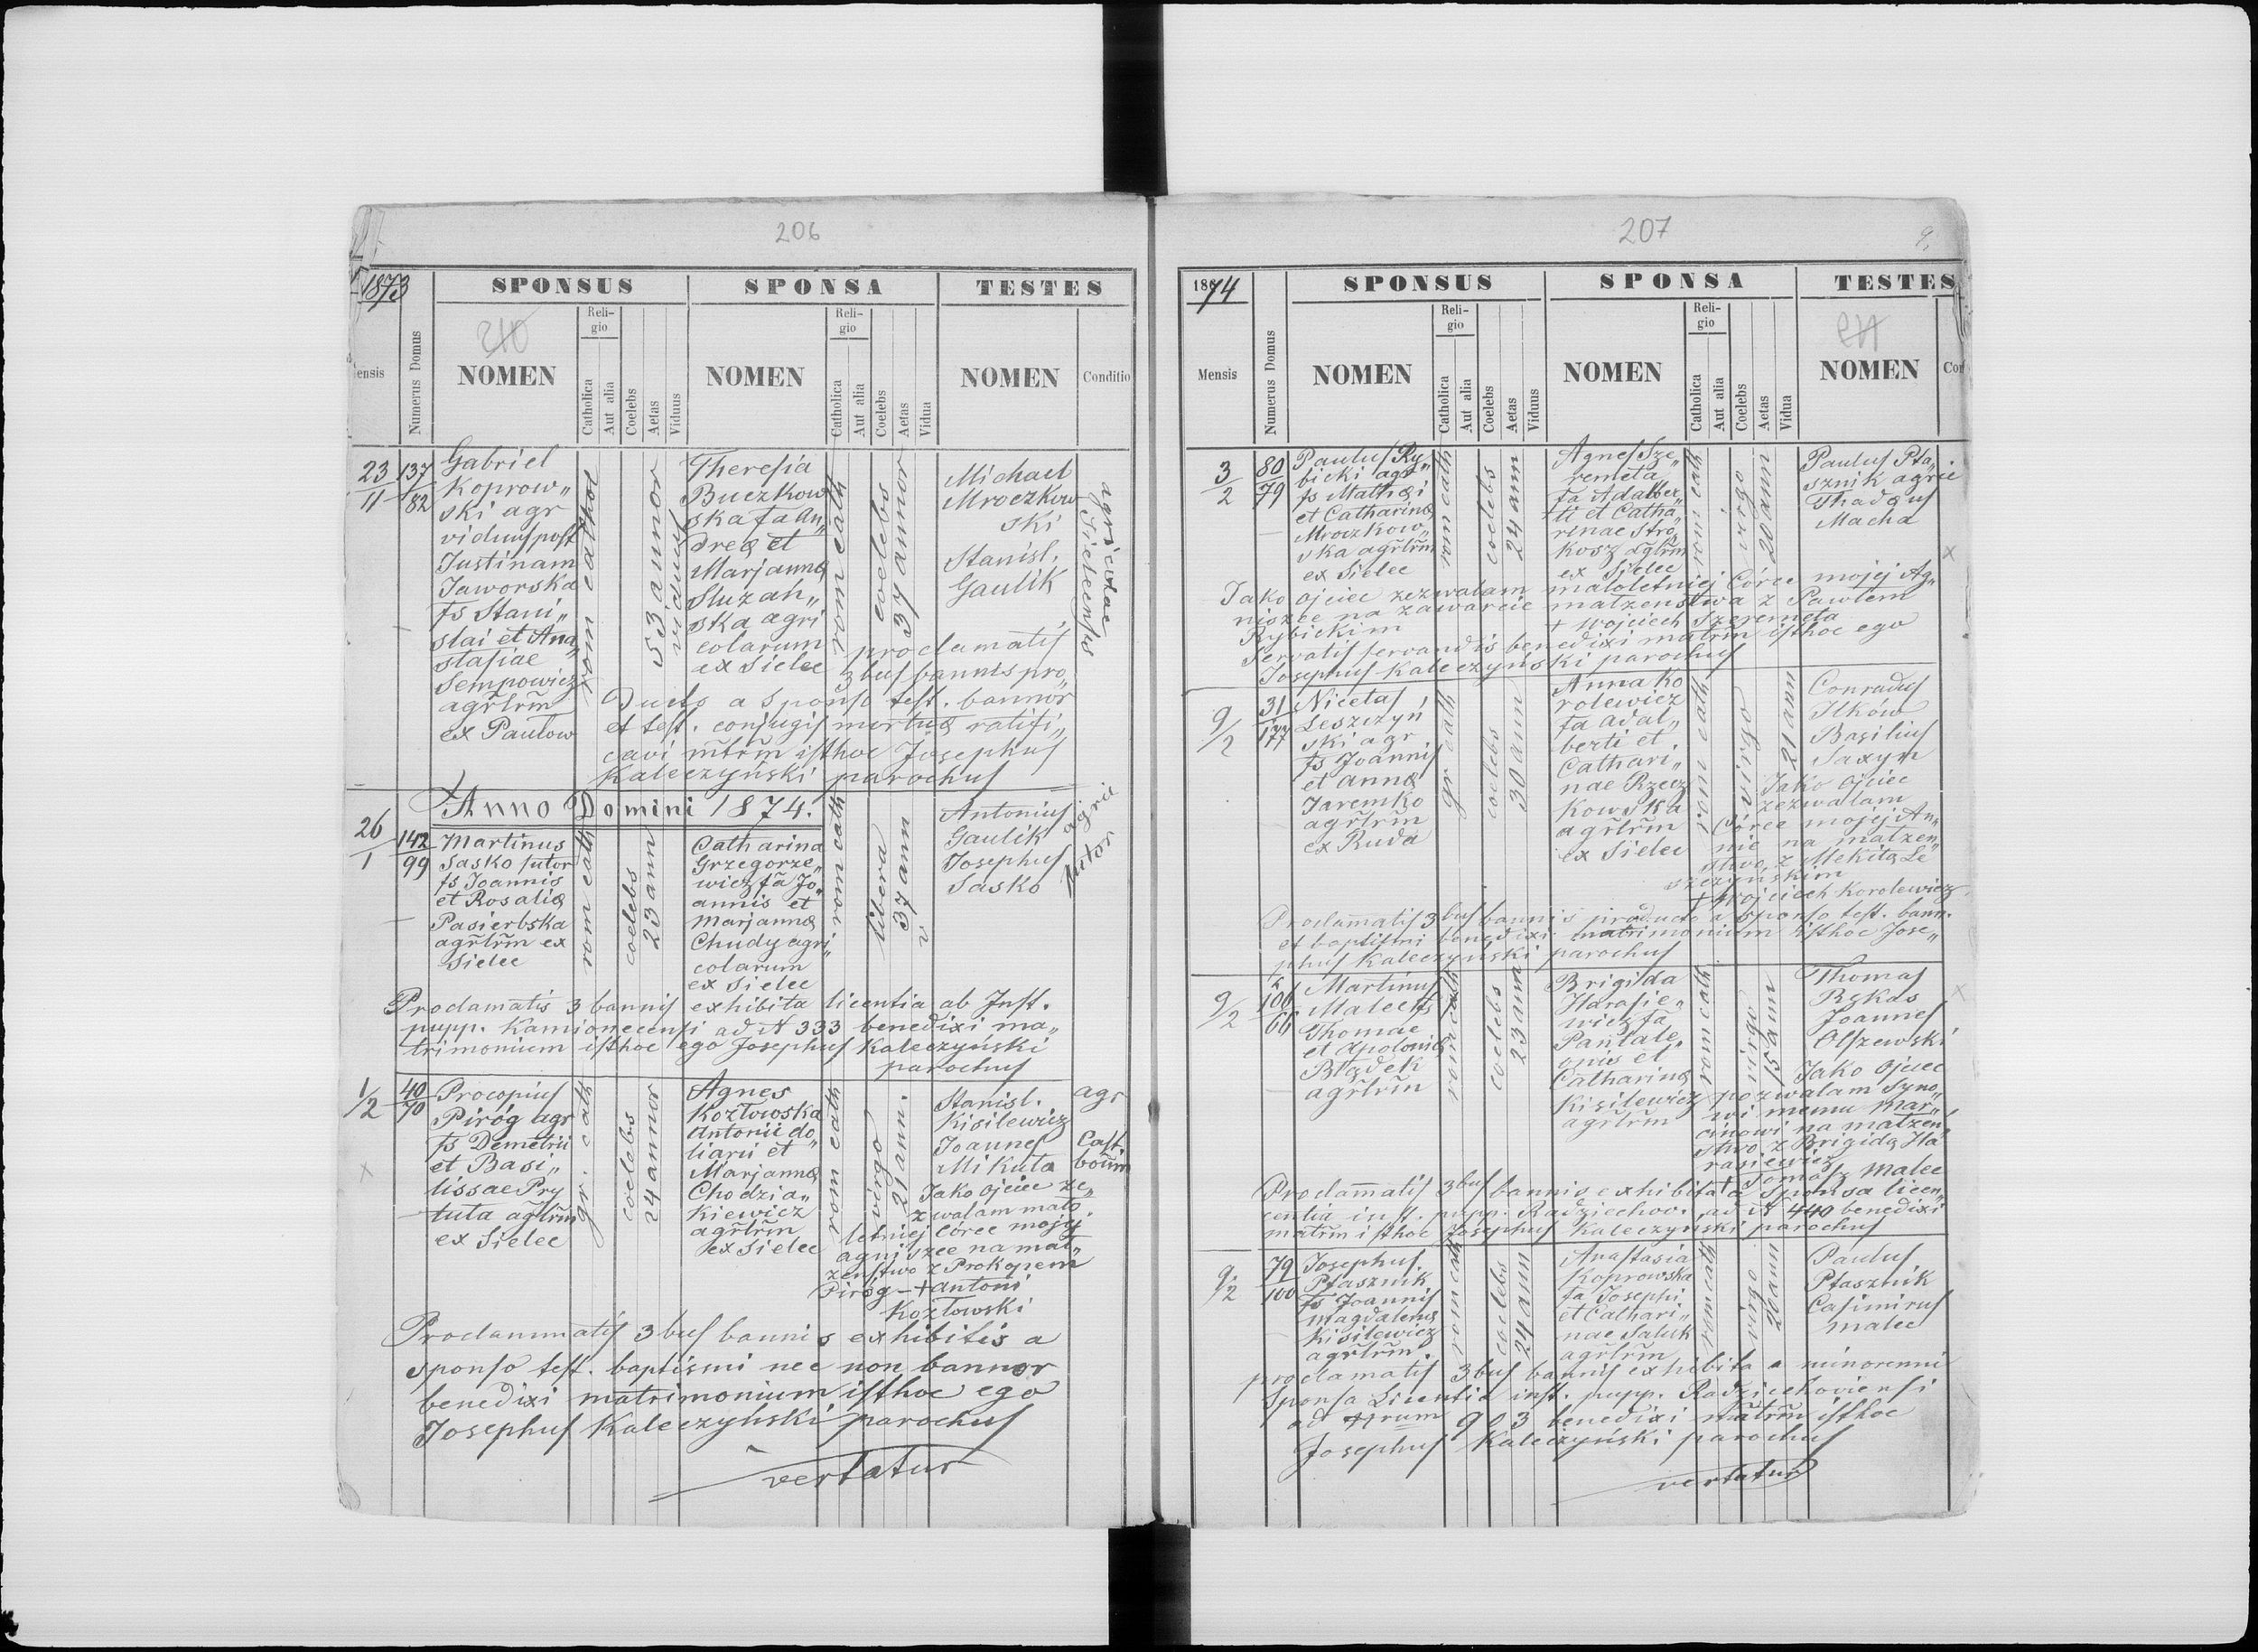 206
1873
SPONSUS
SPONSA
TESTES
ensis
Numerus Domus
NOMEN
Religio
Catholica
Aut alia
Coelebs
Aetas
Viduus
NOMEN
Religio
Catholica
Aut alia
Coelebs
Aetas
Vidua
NOMEN
Conditio
23/11
137/82
Gabriel
Koprow„
ski agr
viduus post
Justinam
Jaworska
fs Stani„
slai et Ana„
stasiae
Sempowicz
agrlrm
ex Pawlow
rom cathol
53 annor
viduus
Theresia
Buczkow
ska fa An„
dreæ et
Marjannæ
Sluzah„
ska agri
colarum
ex Sielec
rom cath
coelebs
37 annor
Michael
Mroczkow
ski
Stanisl.
Gaulik
agricolae
Sielecenses
proclamatis
3bus bannis pro„
ducto a sponso test. bannor
et test. conjugis mortuæ ratifi„
cavi mtrm isthoc Josephus
Kaleczyński parochus
Anno Domini 1874.
26/1
142/99
Martinus
Sasko sutor
fs Joannis
et Rosaliæ
Pasierbska
agrlrm ex
Sielec
rom cath
coelebs
23 ann
Catharina
Grzegorze„
wicz fa Jo„
annis et
Marjannæ
Chudy agri„
colarum
ex Sielec
rom cath
libera
37 ann
Antonius
Gaulik
Josephus
Sasko
agric
sutor
Proclamatis 3 bannis exhibita licentia ab Inst.
pupp. Kamionecensi ad N 333 benedixi ma„
trimonium isthoc ego Josephus Kaleczyński
parochus
1/2
40/70
Procopius
Piróg agr
fs Demetrii
et Basi„
lissae Pry
tuta agrlrm
ex Sielec
gr. cath
coelebs
24 annor
Agnes
Kozłowska
Antonii do„
liarii et
Marjannæ
Chodzia„
kiewicz
agrlrm
ex Sielec
rom cath
virgo
21 ann.
Stanisl.
Kisilewicz
Joannes
Mikuta
agr
Cast.
boum
Jako Ojciec ze„
zwalam mało„
letniej Córce mojej
agniszce na mał„
zeństwo z Prokopem
Piróg – + Antoni
Kozłowski
Proclammatis 3bus bannis exhibitis a
sponso test. baptismi nec non bannor
benedixi matrimonium isthoc ego
Josephus Kaleczyński parochus
vertatur
207
9.
1874
SPONSUS
SPONSA
TESTES
Mensis
Numerus Domus
NOMEN
Religio
Catholica
Aut alia
Coelebs
Aetas
Viduus
NOMEN
Religio
Catholica
Aut alia
Coelebs
Aetas
Vidua
NOMEN
3/2
80/79
Paulus Ry„
bicki agr
fs Mathæi
et Catharinæ
Mroczkow„
ska agrlrm
ex Sielec
rom cath
coelebs
24 ann
Agnes Sze„
remeta
fa Adalber„
ti et Catha„
rinae Stro„
kosz agrlrm
ex Sielec
rom cath
virgo
20 ann
Paulus Pta„
sznik agric
Thadæus
Macha
Jako Ojciec zezwalam małoletniej Córce mojej Ag„
niszce na zawarcie matzenstwa z Pawlem
Rybickim + Wojciech Szeremeta
Servatis servandis benedixi matrm isthoc ego
Josephus Kaleczyński parochus
9/2
31/177
Nicetas
Leszczyń
ski agr
fs Joannis
et Annæ
Jaremko
agrlrm
ex Ruda
gr cath
coelebs
30 ann
Anna Ko
rolewicz
fa Adal„
berti et
Cathari„
nae Rzecz
kowska
agrlrm
ex Sielec
rom cath
virgo
21 ann
Conradus
Ilków
Basilius
Saxyn
Jako Ojciec
zezwalam
Córce mojej An„
nie na małzen„
stwo z Mekitą Le
szczyńskim
+ Wojciech Korolewicz
Proclamatis 3bus bannis producto a sponso test. bann.
et baptismi benedixi matrimonium isthoc Jose„
phus Kaleczyński parochus
9/2
106/66
Martinus
Malec fs
Thomae
et Apoloniæ
Błądek
agrlrm
rom cath
coelebs
23 ann
Brigida
Harasie„
wicz fa
Pantale„
onis et
Catharinæ
Kisilewicz
agrlrm
rom cath
virgo
15 ann
Thomas
Rękas
Joannes
Olszewski
Jako Ojciec
pozwalam Syno„
wi memu Mar„
cinowi na małzen„
stwo z Brigidą Ha
rasiewicz
+ Tomasz Malec
Proclammatis 3bus bannis exhibita a sponsa licen„
centia inst. pupp. Radziechov. ad N 440 benedixi
matrm isthoc Josephus Kaleczyński parochus
9/2
79/100
Josephus
Ptasznik
fs Joannis
Magdalenæ
Kisilewicz
agrlrm.
rom cath
coelebs
24 ann
Anastasia
Koprowska
fa Josephi
et Cathari„
nae Saluk
agrlrm
rom cath
virgo
20 ann
Paulus
Ptasznik
Casimirus
Malec
proclamatis 3bus bannis exhibita a minorenni
Sponsa Licentia inst. pupp. Radziechoviensi
ad Nrum 903 benedixi matrm isthoc
Josephus Kaleczyński parochus
vertatur